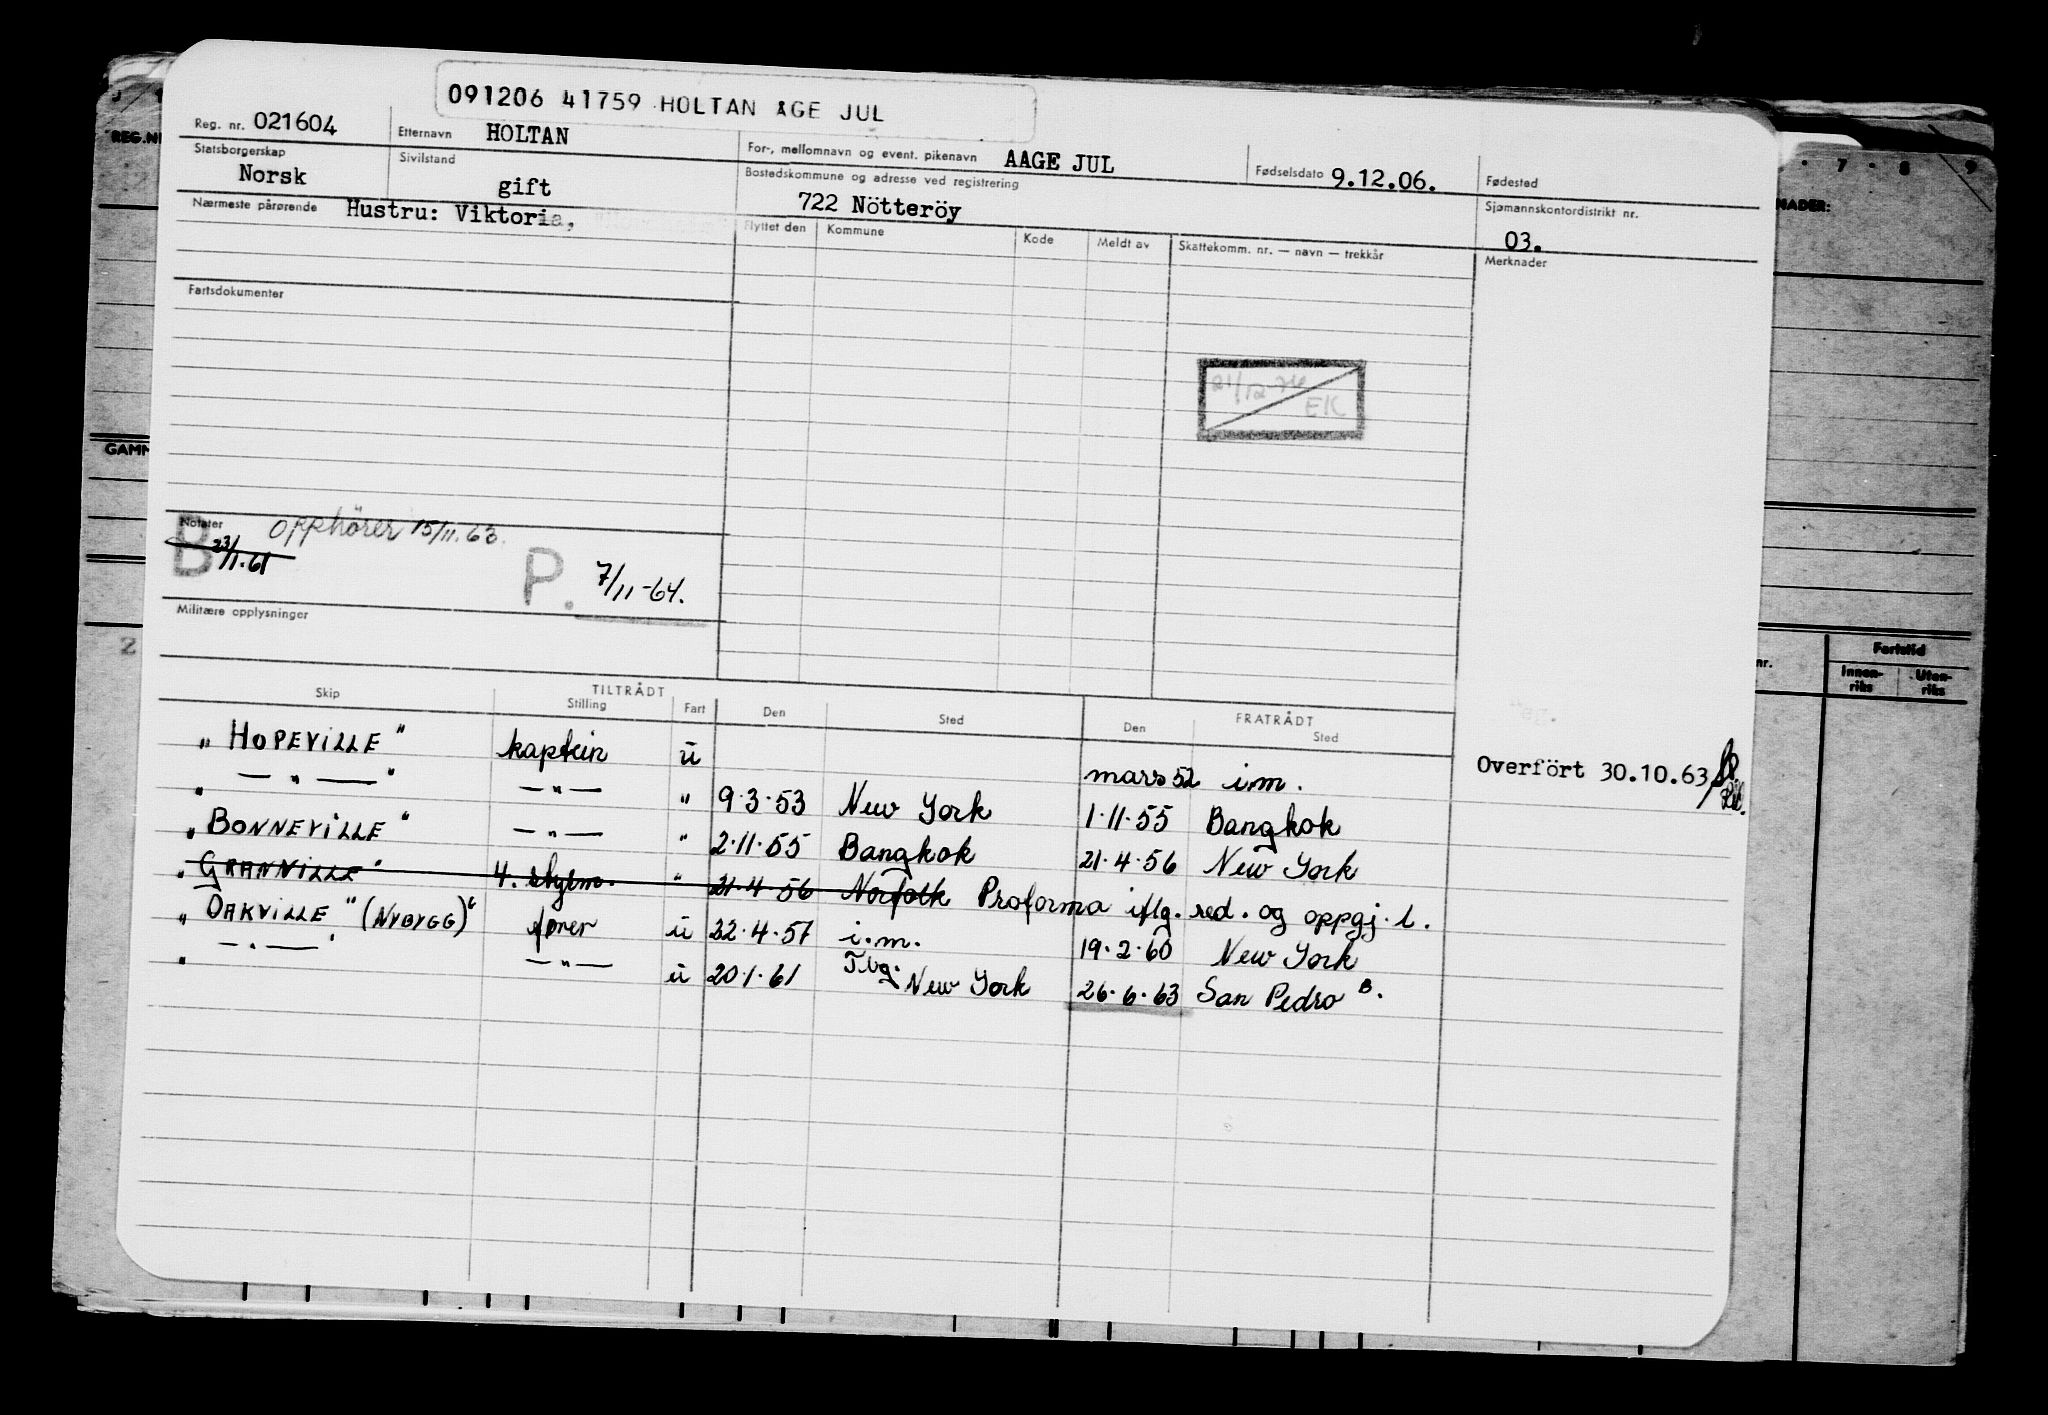 091206 41759 HOLTAN ÅGE JUL
Reg. nr. 021604 Etternavn HOLTAN For-, mellomnavn og event. pikenavn AAGE JUL Fødselsdato 9.12.06. Fødested
Statsborgerskap Norsk Sivilstand gift Bostedskommune og adresse ved registrering 722 Nötteröy Sjømannskontordistrikt nr. 03.
Nærmeste pårørende Hustru: Viktoria,
Flyttet den Kommune Kode Meldt av Skattekomm. nr. — navn — trekkår Merknader
Fartsdokumenter
21/12 EK
Notater Opphörer 15/11.63.
B 23/1.61 P. 7/11-64.
Militære opplysninger
TILTRÅDT FRATRÅDT
Skip Stilling Fart Den Sted Den Sted
"HOPEVILLE" kaptein u mars 52 i.m. Overfört 30.10.63
" — " — " — " — " 9.3.53 New York 1.11.55 Bangkok
"BONNEVILLE" — " — " 2.11.55 Bangkok 21.4.56 New York
"GRANVILLE" 4. styrm. " 21.4.56 Norfolk Proforma iflg. red. og oppgj. l.
"OAKVILLE" (NYBYGG)" fører u 22.4.57 i.m. 19.2.60 New York
" — " — " — " — u 20.1.61 Tbg. New York 26.6.63 San Pedro B.
REG.NR
GAMM
NADER:
7 8 9
nr.
Fartstid
Innen-riks Uten-riks